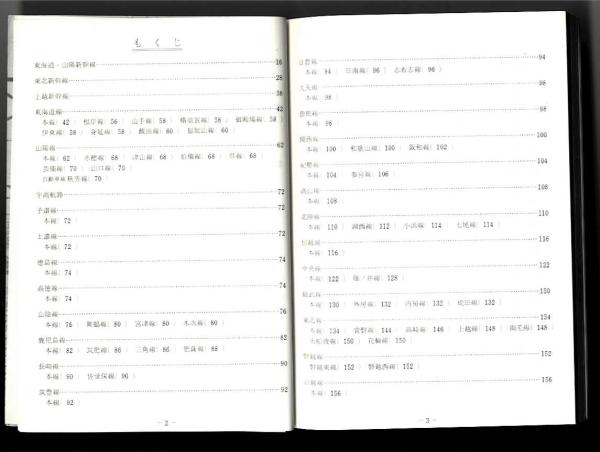 もくじ
東海道・山陽新幹線 16
東北新幹線 28
上越新幹線 38
東海道線 42
本線( 42 ) 根岸線( 56 ) 山手線( 56 ) 横須賀線( 56 ) 御殿場線( 58 )
伊東線( 58 ) 身延線( 58 ) 飯田線( 60 ) 福知山線( 60 )
山陽線 62
本線( 62 ) 赤穂線( 68 ) 津山線( 68 ) 伯備線( 68 ) 呉線( 68 )
芸備線( 70 ) 山口線( 70 )
自動車線秋芳線( 70 )
宇高航路 72
予讃線 72
本線( 72 )
土讃線 72
本線( 72 )
徳島線 74
本線( 74 )
高徳線 74
本線( 74 )
山陰線 76
本線( 76 ) 舞鶴線( 80 ) 宮津線( 80 ) 木次線( 80 )
鹿児島線 82
本線( 82 ) 筑肥線( 86 ) 三角線( 86 ) 肥薩線( 88 )
長崎線 90
本線( 90 ) 佐世保線( 90 )
筑豊線 92
本線( 92 )
－2－
日豊線 94
本線( 94 ) 日南線( 96 ) 志布志線( 96 )
久大線 98
本線( 98 )
豊肥線 98
本線( 98 )
関西線 100
本線( 100 ) 和歌山線( 100 ) 阪和線( 102 )
紀勢線 104
本線( 104 ) 参宮線( 106 )
高山線 108
本線( 108 )
北陸線 110
本線( 110 ) 湖西線( 112 ) 小浜線( 114 ) 七尾線( 114 )
信越線 116
本線( 116 )
中央線 122
本線( 122 ) 篠ノ井線( 128 )
総武線 130
本線( 130 ) 外房線( 132 ) 内房線( 132 ) 成田線( 132 )
東北線 134
本線( 134 ) 常磐線( 144 ) 高崎線( 146 ) 上越線( 148 ) 両毛線( 148 )
大船渡線( 150 ) 花輪線( 150 )
磐越線 152
磐越東線( 152 ) 磐越西線( 152 )
156
本線( 156 )
－3－